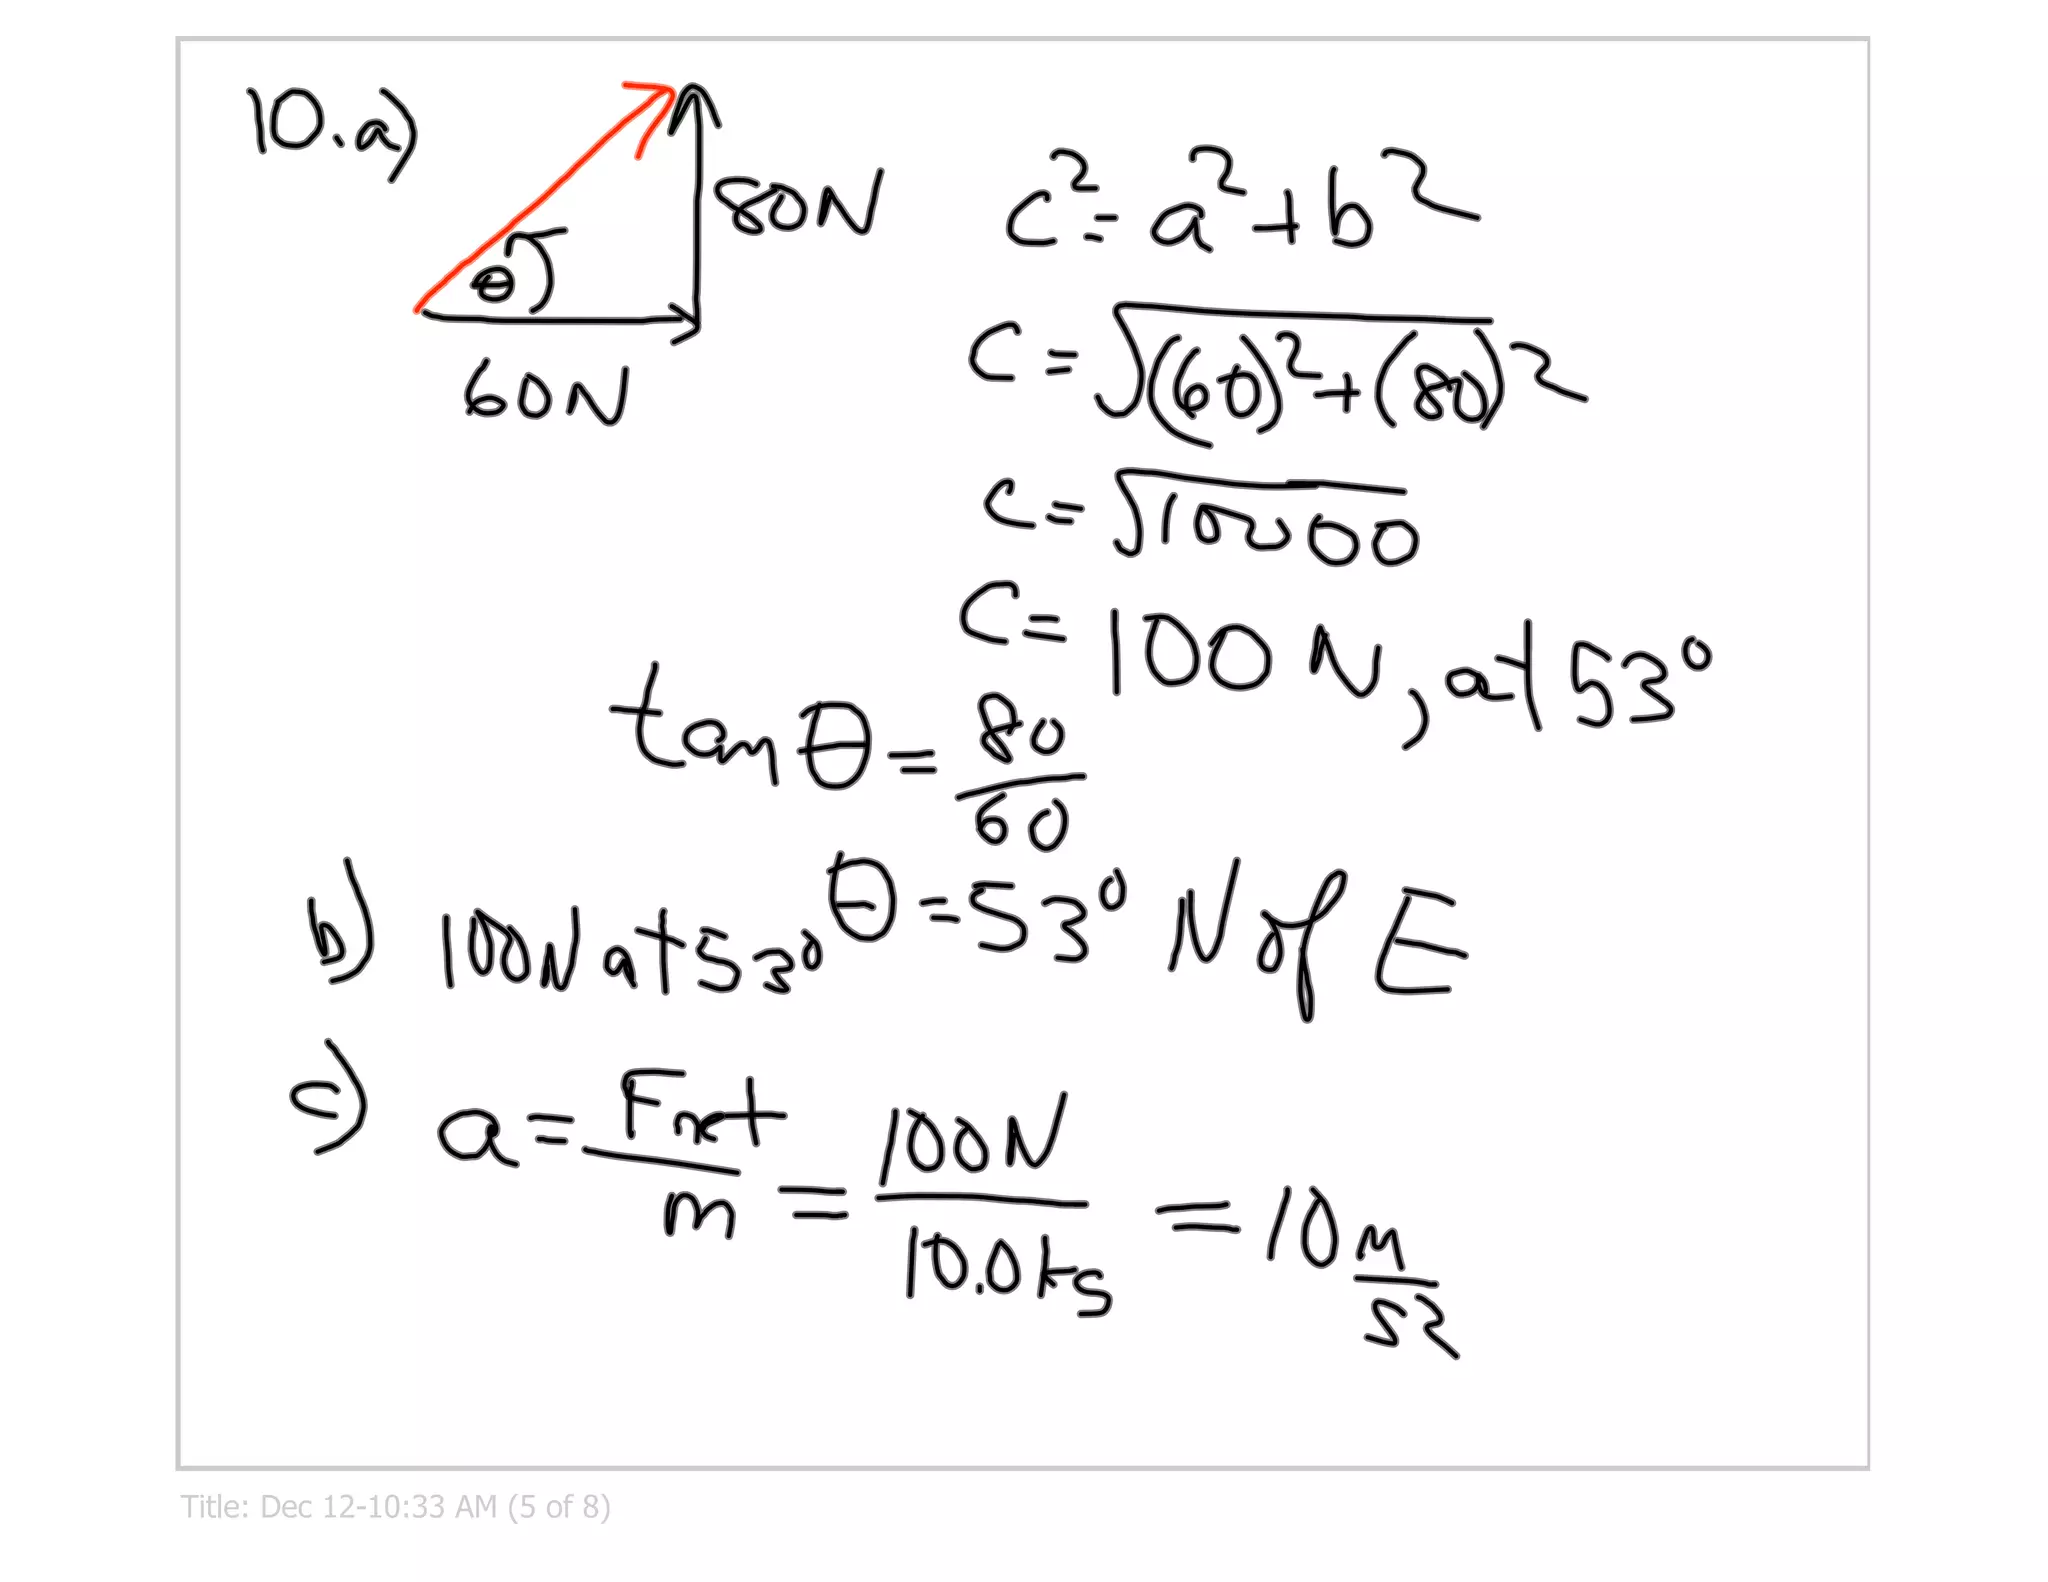 10.a)
80N
θ
60N
c²=a²+b²
c=√(60)²+(80)²
c=√10000
c=100N, at 53°
tanθ=80/60
θ=53° N of E
b) 100N at 53°
c) a=Fnet/m = 100N/10.0kg = 10 m/s²
Title: Dec 12-10:33 AM (5 of 8)